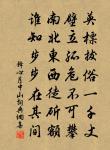 英標拔俗一千丈
壁立孤危不可攀
南北東西徒斫額
誰知步步在其間
釋心月中山詞典網